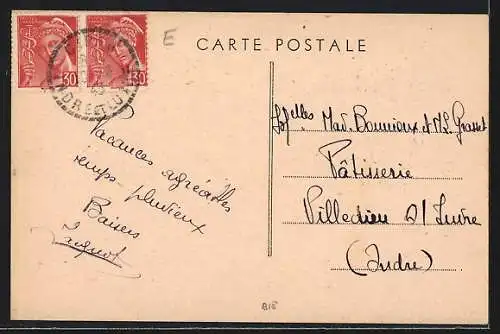 E
CARTE POSTALE
30
30
INDRE ET LOIRE
Vacances agréables
temps pluvieux
Baisers
Jacquot
Melles Mad. Bonnioux et M.L. Grasset
Pâtisserie
Villedieu s/ Indre
(Indre)